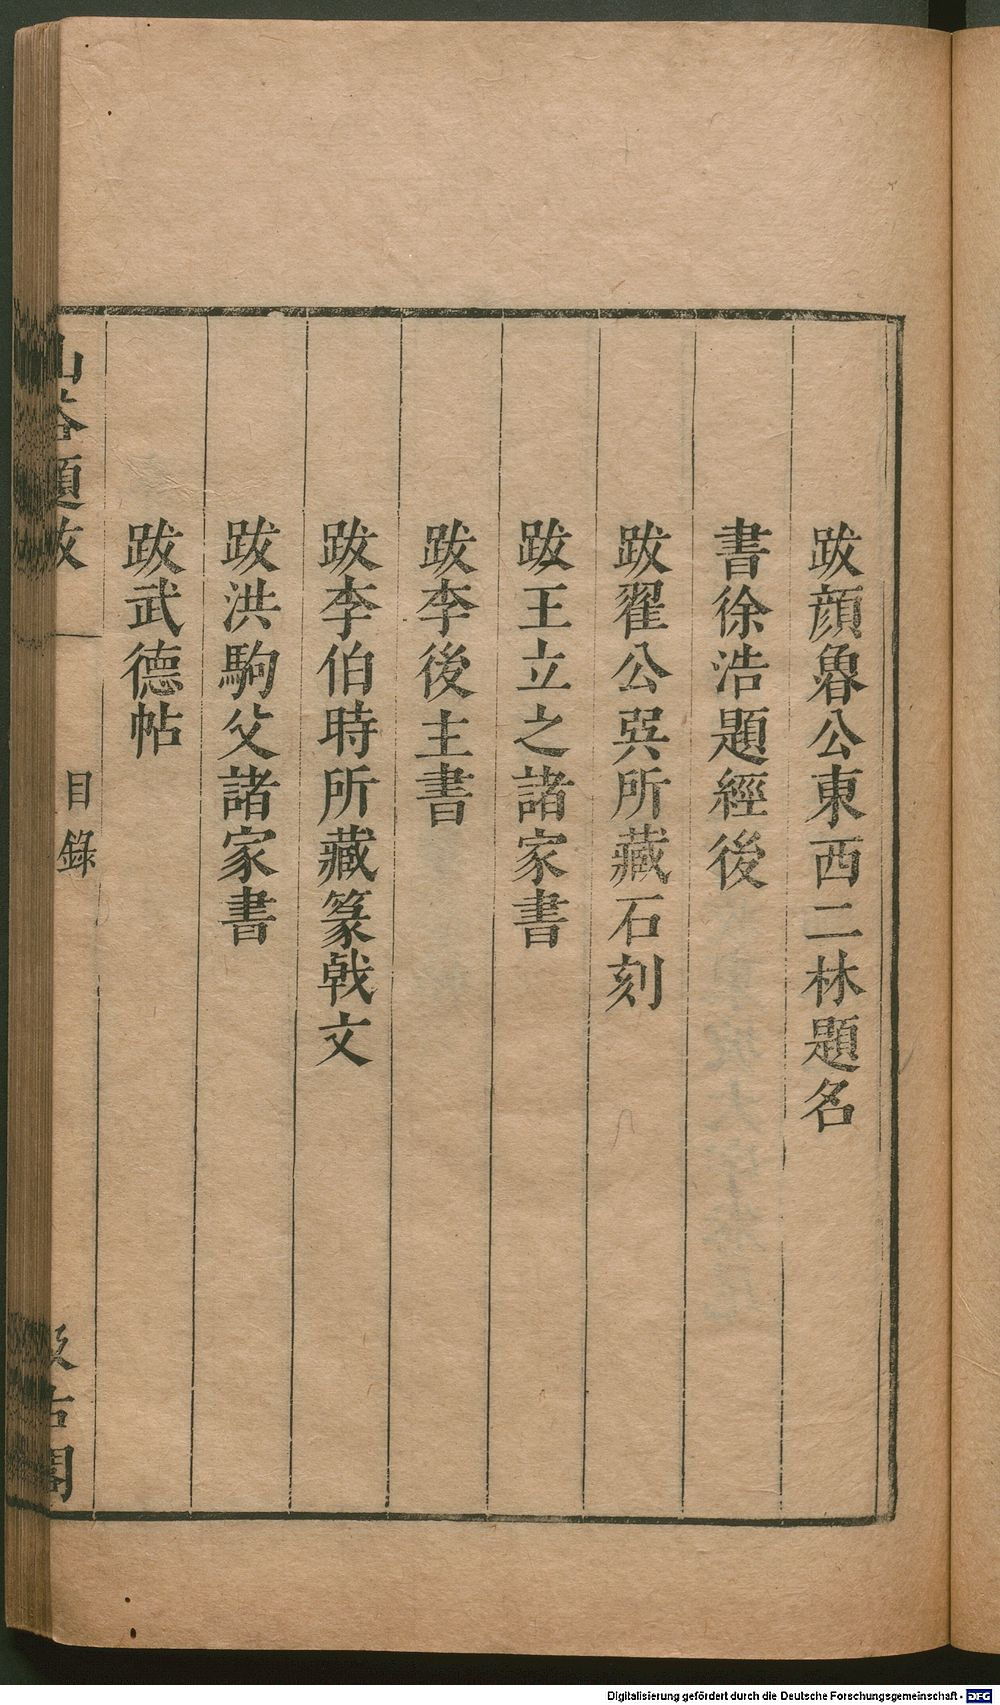 跋顔魯公東西二林題名
書徐浩題經後
跋翟公巽所藏石刻
跋王立之諸家書
跋李後主書
跋李伯時所藏篆戟文
跋洪駒父諸家書
跋武德帖
山谷題跋
目錄
汲古閣
Digitalisierung gefördert durch die Deutsche Forschungsgemeinschaft - DFG